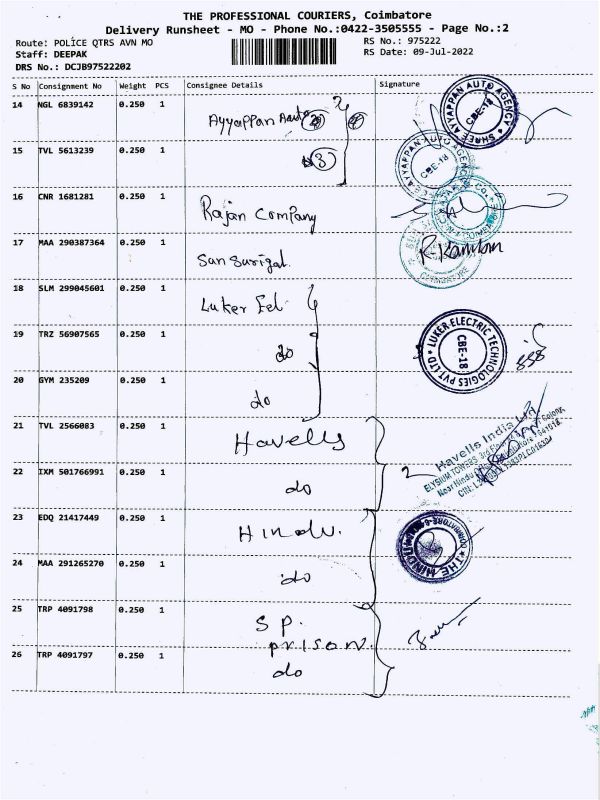 THE PROFESSIONAL COURIERS, Coimbatore
Delivery Runsheet - MO - Phone No.:0422-3505555 - Page No.:2
Route: POLICE QTRS AVN MO RS No.: 975222
Staff: DEEPAK RS Date: 09-Jul-2022
DRS No.: DCJB97522202
S No Consignment No Weight PCS Consignee Details Signature
14 NGL 6839142 0.250 1 Ayyappan Auto
15 TVL 5613239 0.250 1 3
16 CNR 1681281 0.250 1 Rajan Company
17 MAA 290387364 0.250 1
18 SLM 299045601 0.250 1 Luker Eel
19 TRZ 56907565 0.250 1 do
20 GYM 235209 0.250 1 do
21 TVL 2566083 0.250 1 Havells
22 IXM 501766991 0.250 1 do 2
23 EDQ 21417449 0.250 1 Hindu.
24 MAA 291265270 0.250 1 do
25 TRP 4091798 0.250 1 S P.
prison.
26 TRP 4091797 0.250 1 do
SHREE AYYAPPAN AUTO AGENCY
CBE-18
AYYAPPAN AUTO AGENCY
CBE-18
COIMBATORE
LUKER ELECTRIC TECHNOLOGIES PVT LTD
CBE-18
Havells India Ltd.
ELYSIUM TOWERS 3rd
Near Hindu
THE HINDU